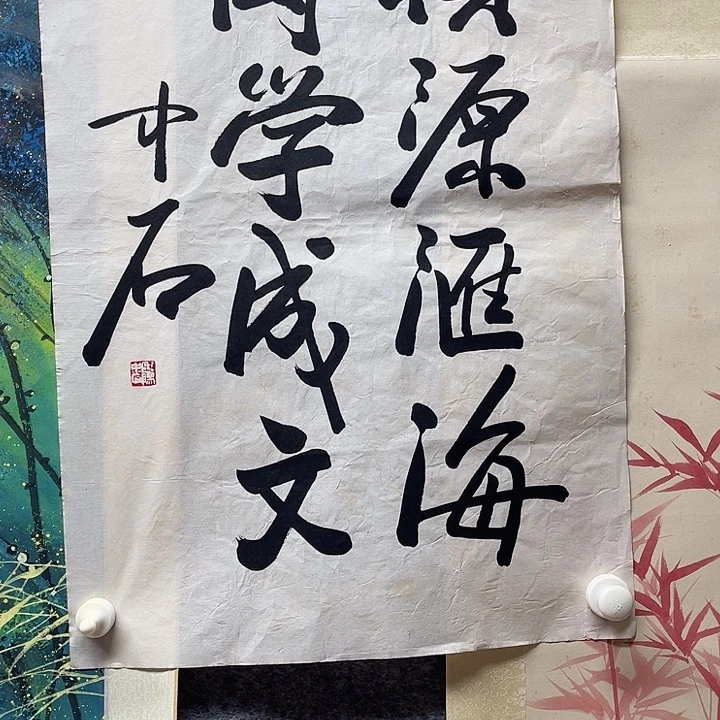 源滙海
学成文
中石